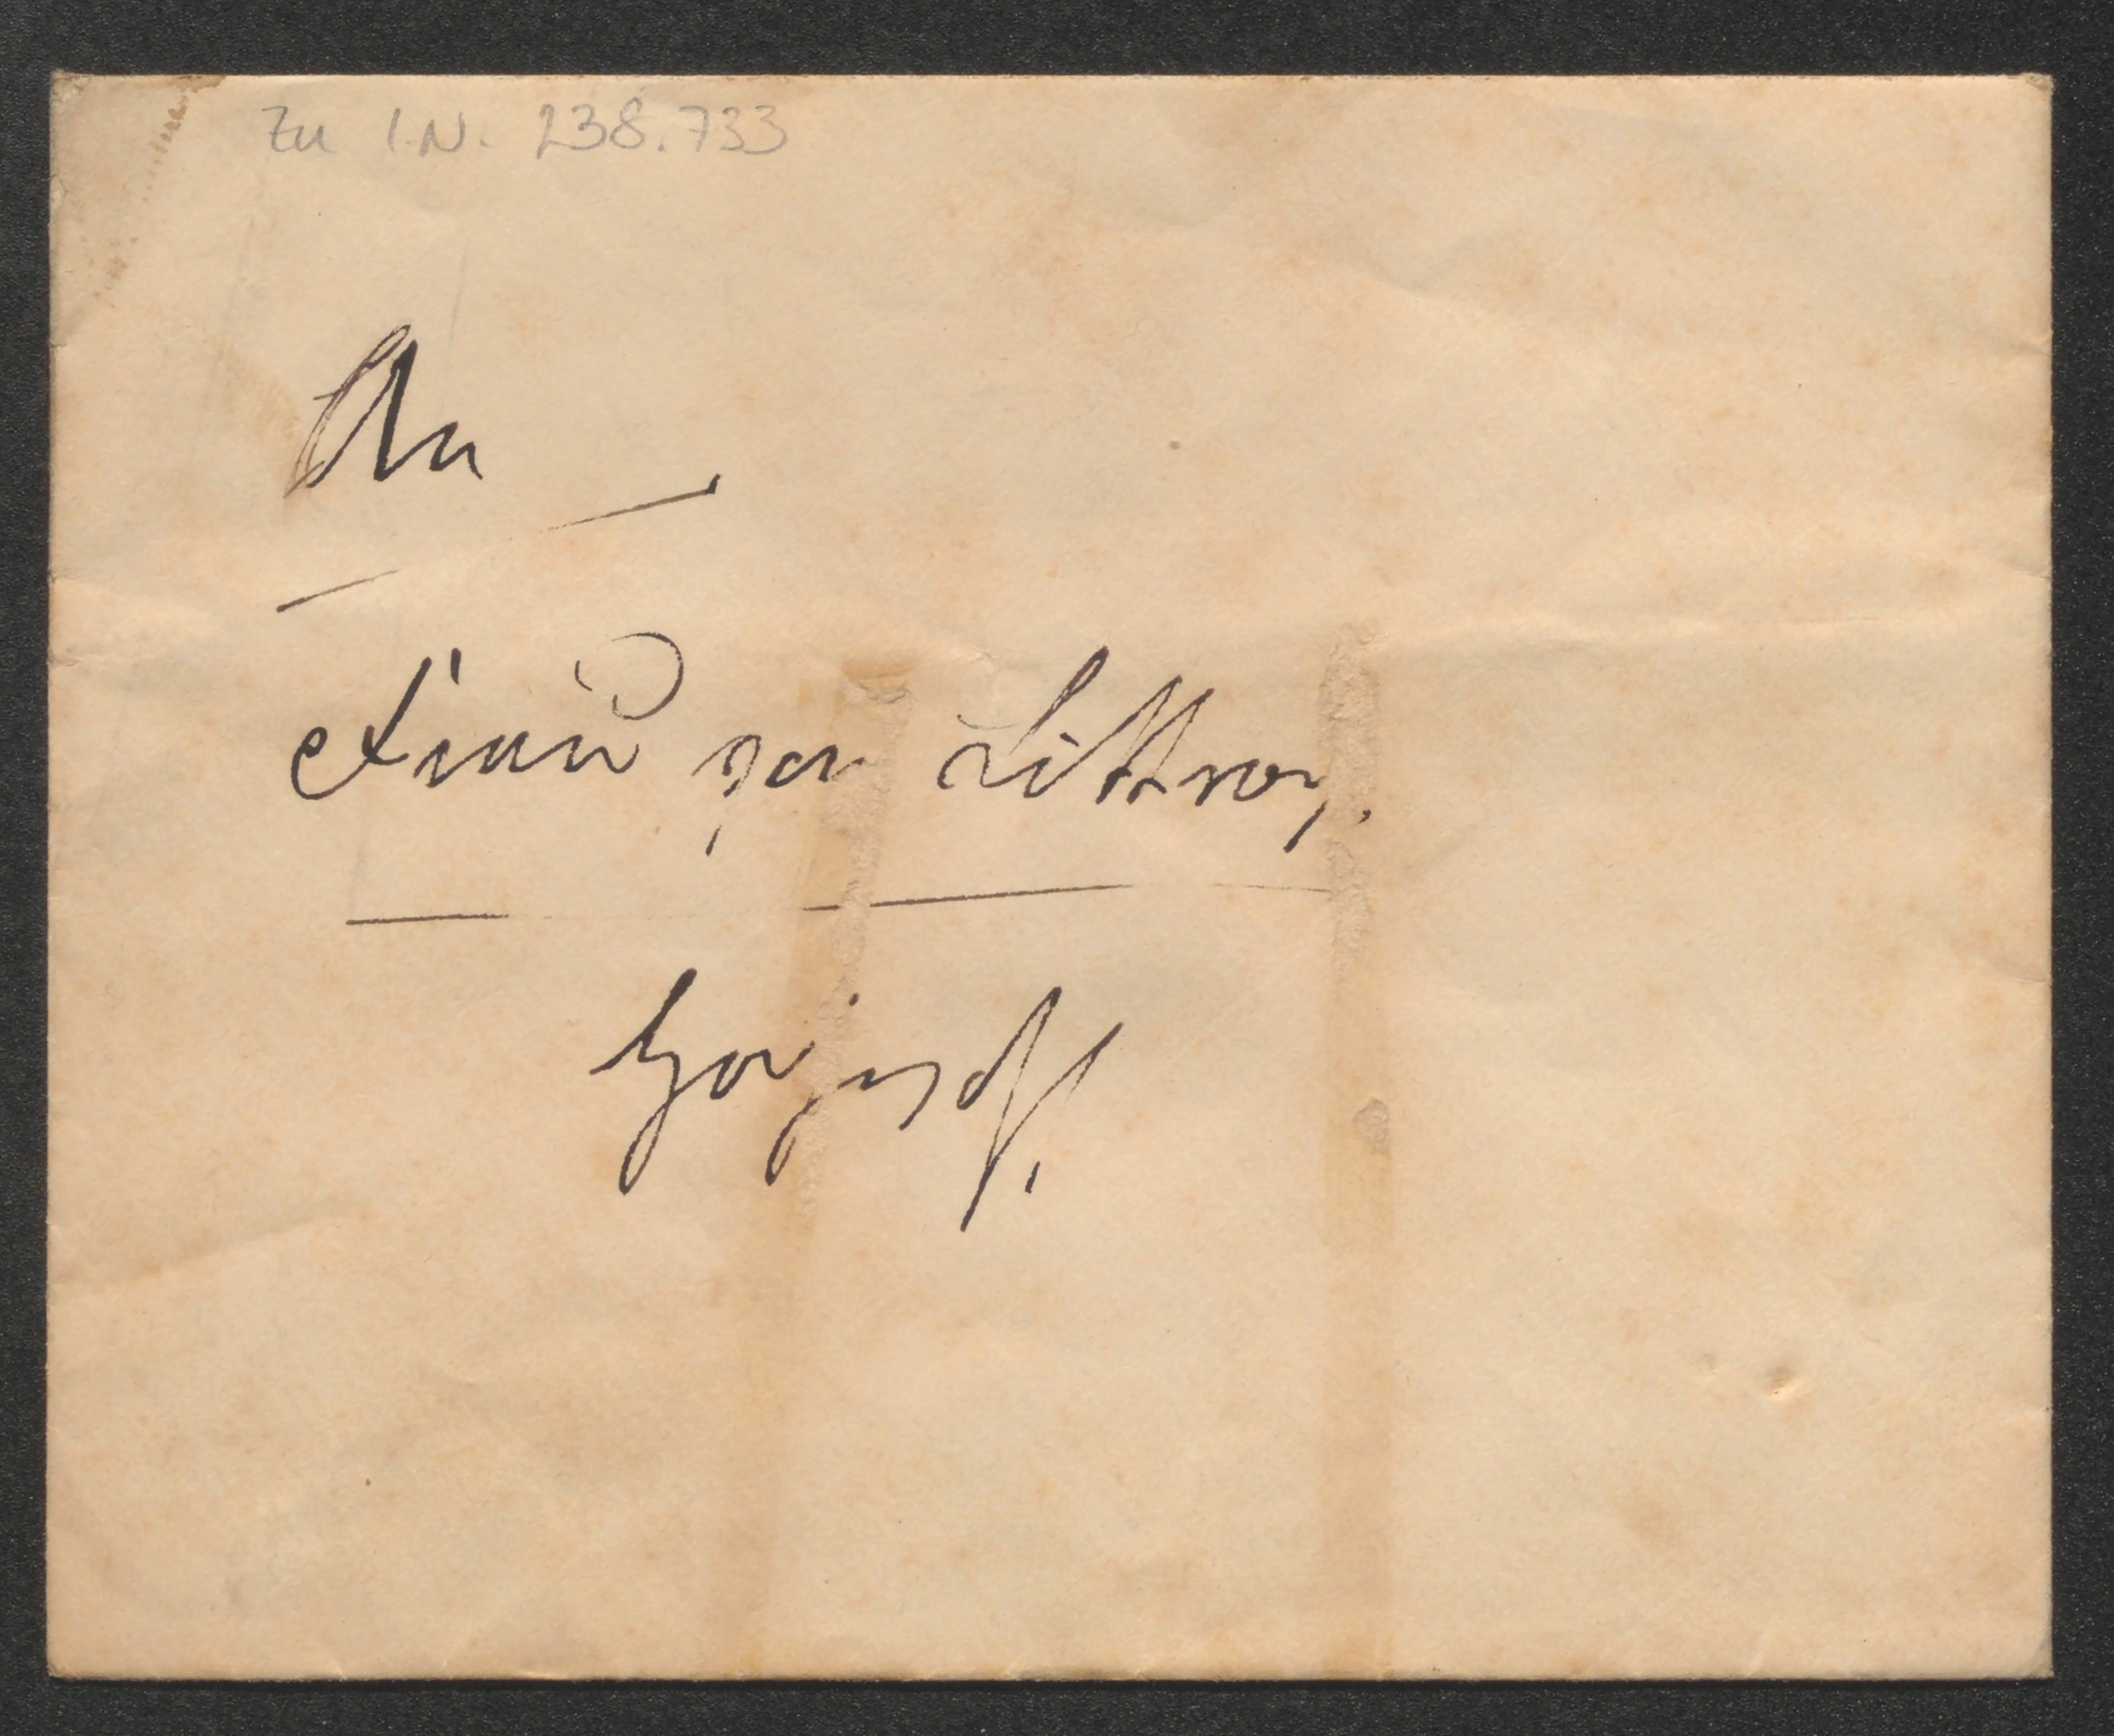 Zu I.N. 238.733
An
Frau von Littrow.
Hochgeb.